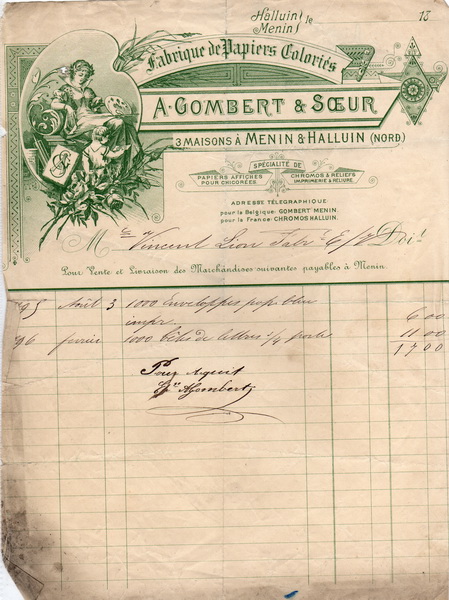 Halluin } le 18
Menin }
Fabrique de Papiers Coloriés
A. GOMBERT & SŒUR
3 MAISONS À MENIN & HALLUIN (NORD)
SPÉCIALITÉ DE
PAPIERS AFFICHES POUR CHICORÉES
CHROMOS & RELIEFS IMPRIMERIE & RELIURE
ADRESSE TÉLÉGRAPHIQUE
pour la Belgique: GOMBERT MENIN,
pour la France: CHROMOS HALLUIN.
M Vincent Lion
Pour Vente et Livraison des Marchandises suivantes payables à Menin.
95 Août 3 1000 enveloppes bleu
impr. 6 00
96 fevrier 1000 têtes de lettres 1/4 11 00
17 00
Pour Aquit
AGombert